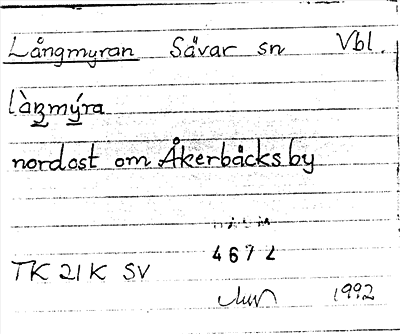 Långmyran Sävar sn Vbl.
làŋmýra
nordost om Åkerbäcks by
4672
TK 21K SV
1992